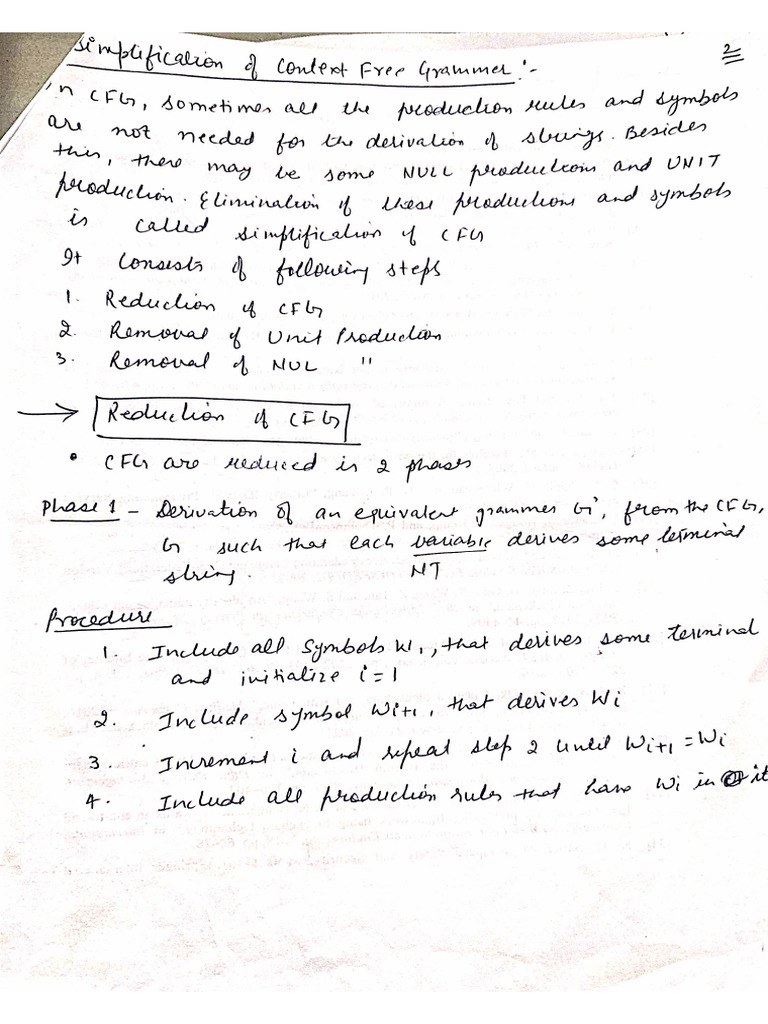 2
Simplification of Context Free Grammer :-
In CFG, sometimes all the production rules and symbols
are not needed for the derivation of strings. Besides
this, there may be some NULL productions and UNIT
production. Elimination of these productions and symbols
is called simplification of CFG
It consists of following steps
1. Reduction of CFG
2. Removal of Unit Production
3. Removal of NUL "
→ Reduction of CFG
• CFG are reduced in 2 phases
Phase 1 - Derivation of an equivalent grammer G', from the CFG,
G such that each variable derives some terminal
string. NT
Procedure
1. Include all symbols W1, that derives some terminal
and initialize i=1
2. Include symbol Wi+1, that derives Wi
3. Increment i and repeat step 2 until Wi+1 = Wi
4. Include all production rules that have Wi in it